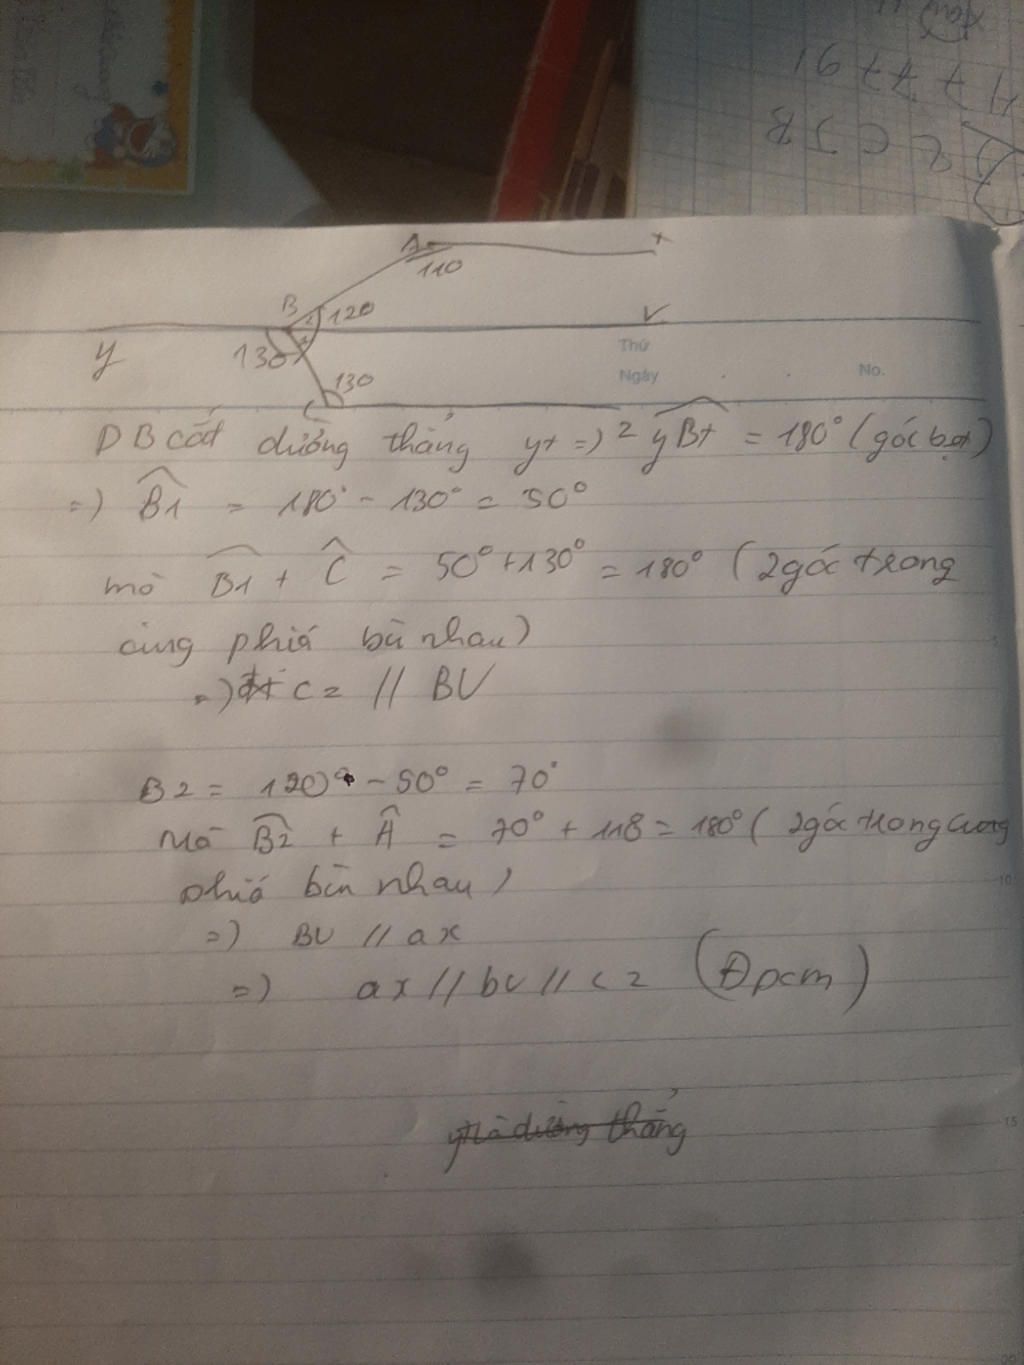 H77791
ZCJR
A
x
110
B
2
120
V
y
130
1
130
C
Thứ
Ngày
No.
DB cắt đường thẳng yt =) 2 yBt = 180° (góc bẹt)
=) B1 = 180° - 130° = 50°
mà B1 + C = 50° + 130° = 180° (2 góc trong
cùng phiá bù nhau)
=) Cz // BV
B2 = 120° - 50° = 70°
Mà B2 + A = 70° + 118 = 180° ( 2 góc trong cùng
phiá bùn nhau)
=) BV // ax
=) ax // bv // cz (Đpcm)
yt là đường thẳng
5
10
15
20